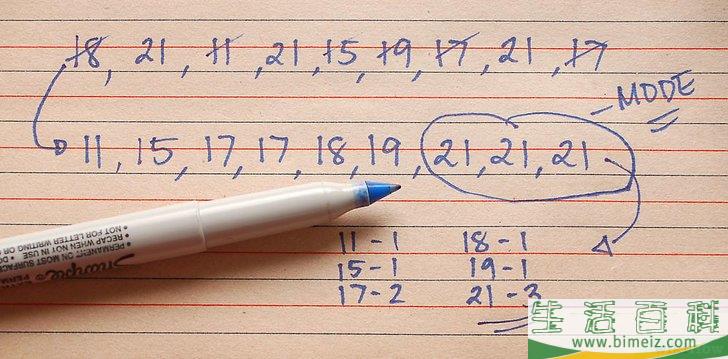 18, 21, 11, 21, 15, 19, 17, 21, 17
MODE
11, 15, 17, 17, 18, 19, 21, 21, 21
11-1 18-1
15-1 19-1
17-2 21-3
Sharpie
PERMANENT ON MOST SURFACES
RECAP WHEN NOT IN USE
NOT FOR LETTER WRITING OR
生活百科
www.bimeiz.com